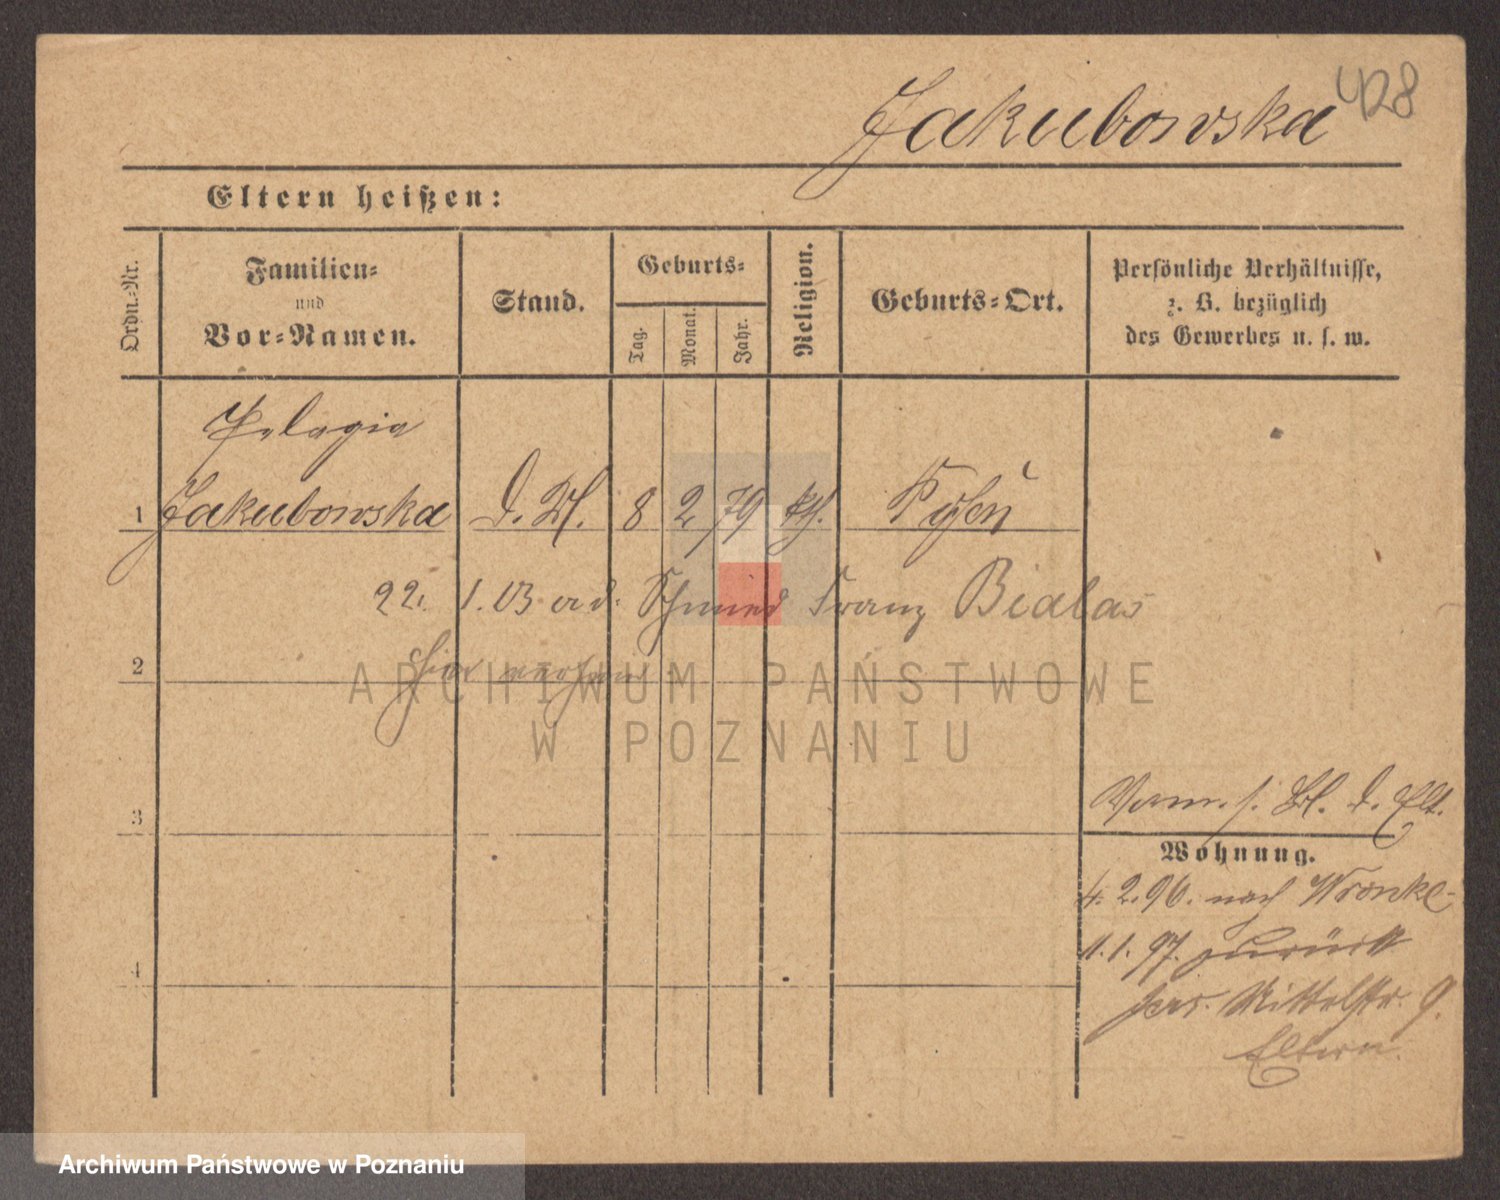 428
Jakubowska
Eltern heißen:
Ordn.-Nr.
Familien-
und
Vor-Namen.
Stand.
Geburts-
Tag.
Monat.
Jahr.
Religion.
Geburts-Ort.
Persönliche Verhältnisse,
z. B. bezüglich
des Gewerbes u. s. w.
Pelagia
1 Jakubowska D. M. 8 2 79 kh. Posen
22. 1. 03 a d. Schmied Franz Bialas
hier
2
ARCHIWUM PAŃSTWOWE
W POZNANIU
3
Verm. s. Bl. d. Elt.
Wohnung.
4. 2. 96. nach Wronke
11. 1. 97. zurück
4
Mittelstr. 9.
Eltern.
Archiwum Państwowe w Poznaniu